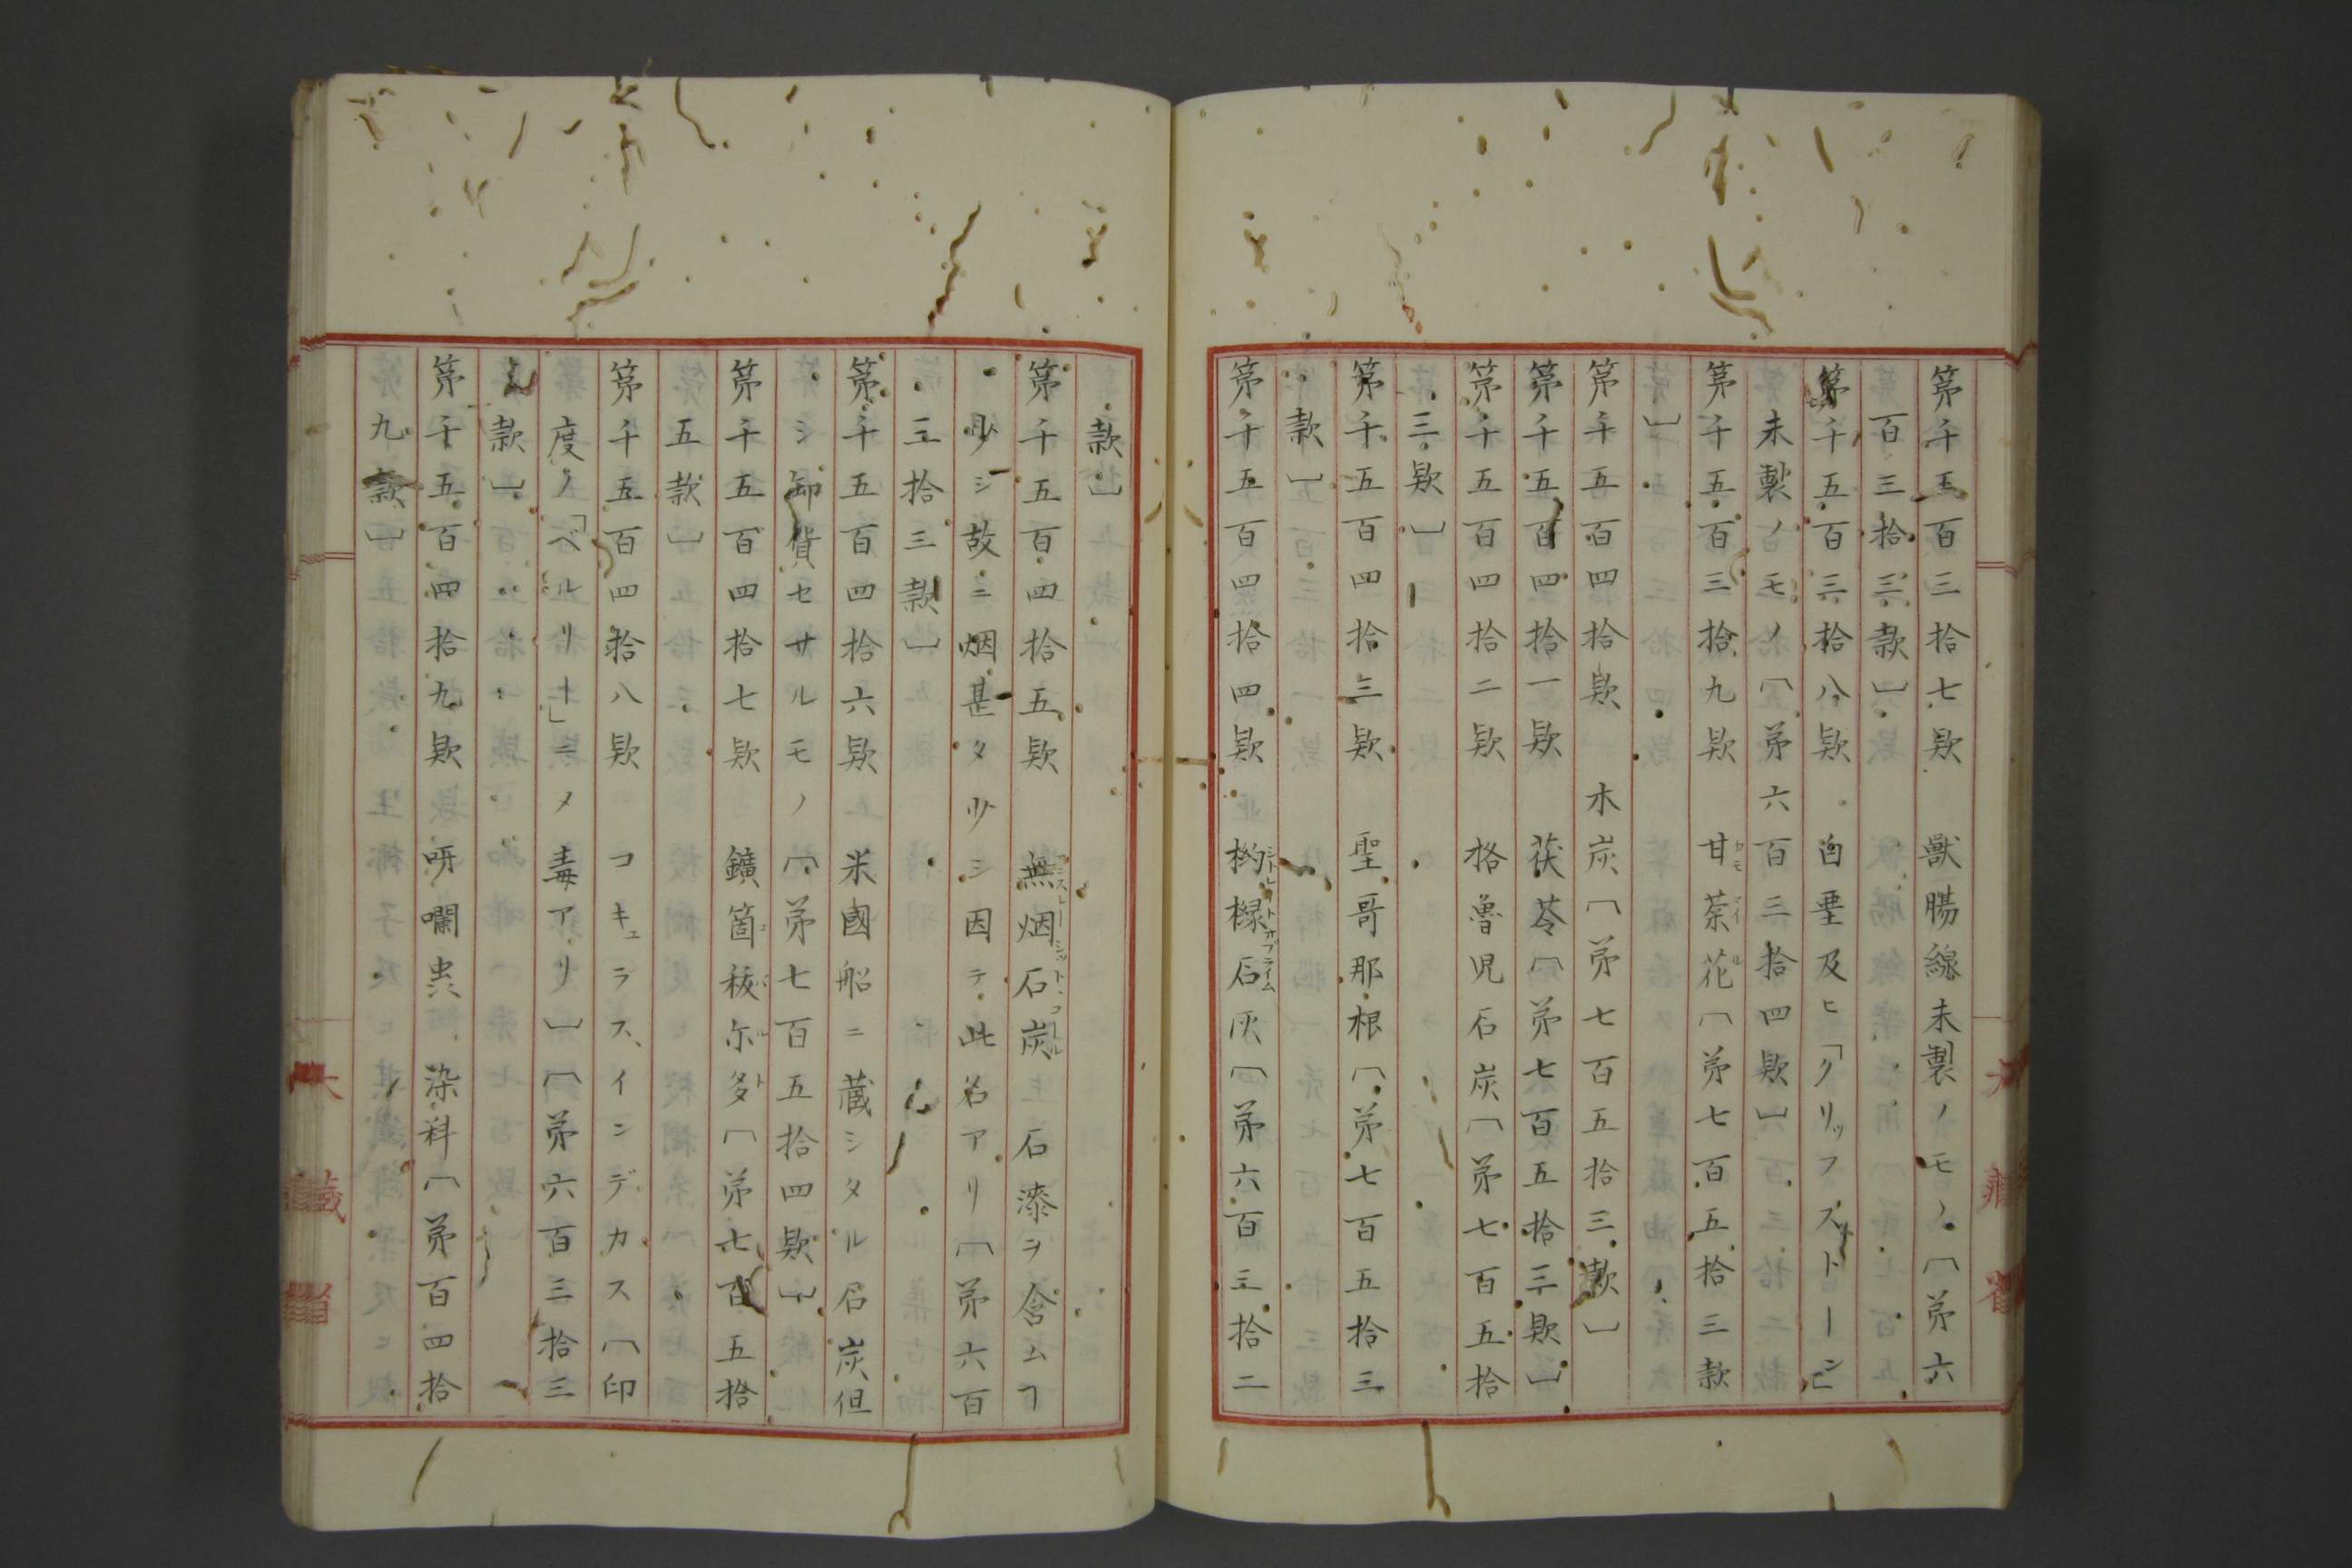 第千五百三拾七款　獸腸線未製ノモノ〔第六
百三拾三款〕
第千五百三拾八款　白堊及ヒ「クリッフストーン」
未製ノモノ〔第六百三拾四款〕
第千五百三拾九款　甘菜花〔第七百五拾三款
〕
第千五百四拾款　木炭〔第七百五拾三款〕
第千五百四拾一款　茯苓〔第七百五拾三款〕
第千五百四拾二款　格魯児石炭〔第七百五拾
三款〕
第千五百四拾三款　聖哥那根〔第七百五拾三
款〕
第千五百四拾四款　枸櫞石灰〔第六百三拾二
款〕
第千五百四拾五款　無烟石炭　石漆ヲ含ムヿ
少シ故ニ烟甚タ少シ因テ此名アリ〔第六百
三拾三款〕
第千五百四拾六款　米國船ニ蔵シタル石炭但
シ卸貨セサルモノ〔第七百五拾四款〕
第千五百四拾七款　鑛箇稜尓多〔第七百五拾
五款〕
第千五百四拾八款　コキュラス、インデカス〔印
度ノ「ベルリー」ニメ毒アリ〕〔第六百三拾三
款〕
第千五百四拾九款　呀囒虫　染料〔第百四拾
九款〕
大藏省